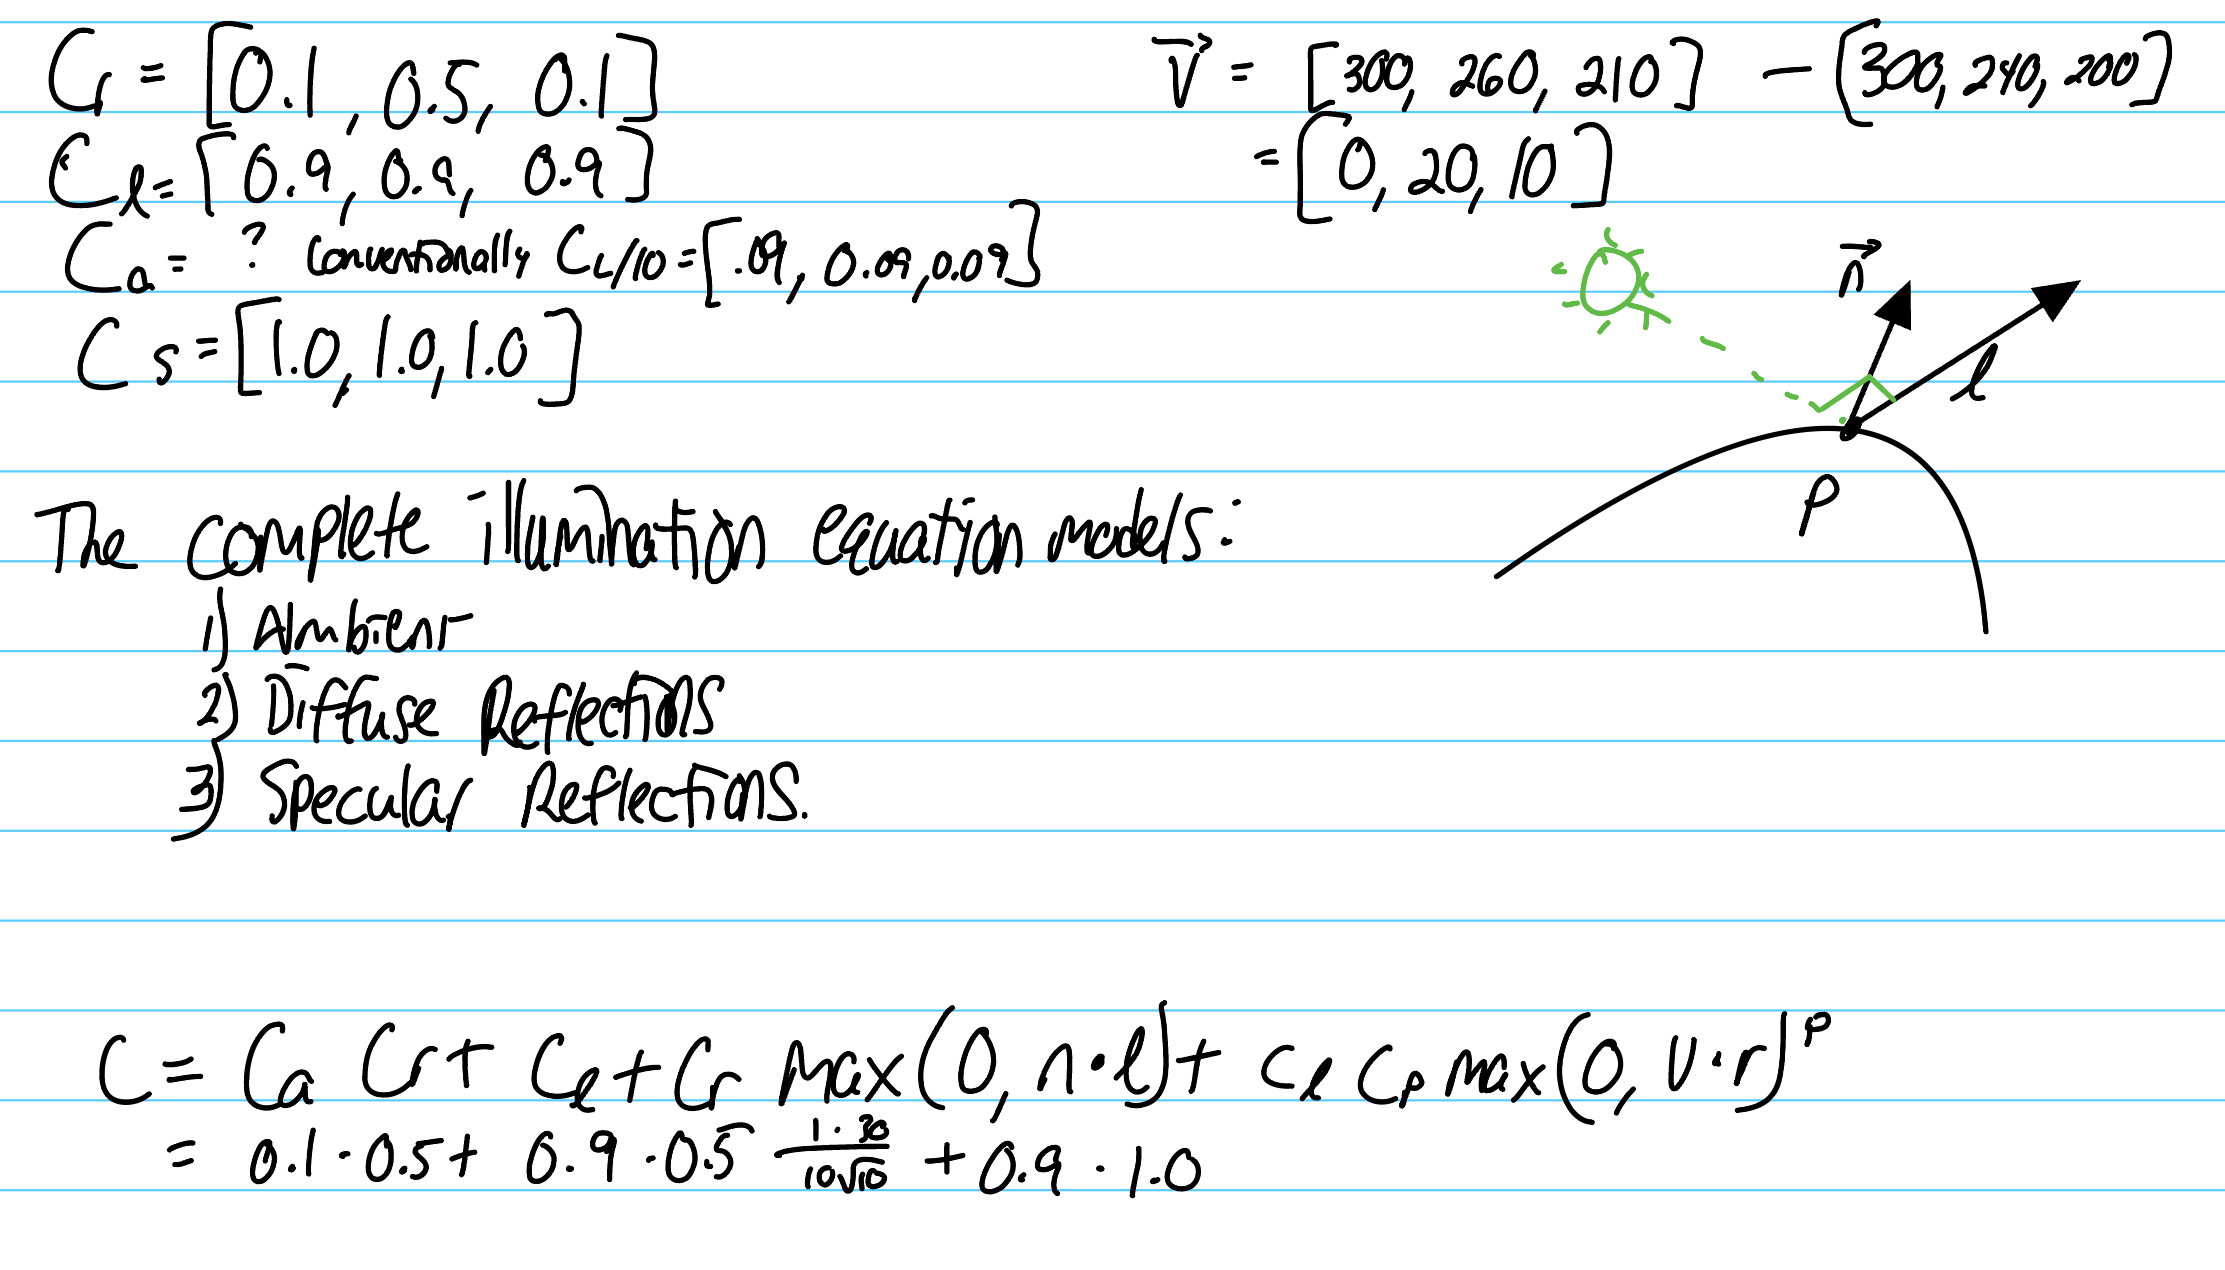 Cr = [0.1, 0.5, 0.1]
Cl = [0.9, 0.9, 0.9]
Ca = ? Conventionally CL/10 = [.09, 0.09, 0.09]
Cs = [1.0, 1.0, 1.0]
V⃗ = [300, 260, 210] - [300, 240, 200]
= [0, 20, 10]
n⃗
l
p
The complete illumination equation models:
1) Ambient
2) Diffuse Reflections
3) Specular Reflections.
C = Ca Cr + Cl + Cr max(0, n·l) + Cl Cp max(0, v·r)^p
= 0.1 · 0.5 + 0.9 · 0.5 (1·30)/(10√10) + 0.9 · 1.0